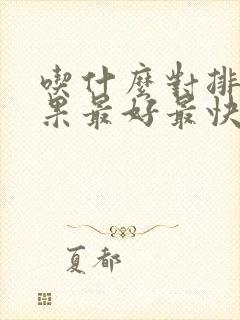 喫什麼對排
果最好最快
夏都